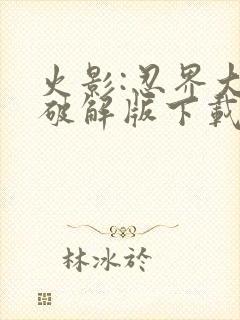 火影:忍界大
破解版下載
林冰於